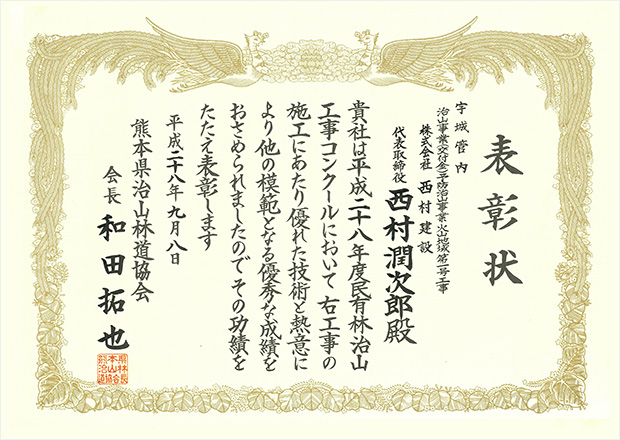 表彰状
宇城管内
治山事業交付金予防治山事業火山地域第一号工事
株式会社 西村建設
代表取締役 西村潤次郎殿
貴社は平成二十八年度民有林治山
工事コンクールにおいて 右工事の
施工にあたり優れた技術と熱意に
より他の模範となる優秀な成績を
おさめられましたので その功績を
たたえ表彰します
平成二十八年九月八日
熊本県治山林道協会
会長 和田拓也